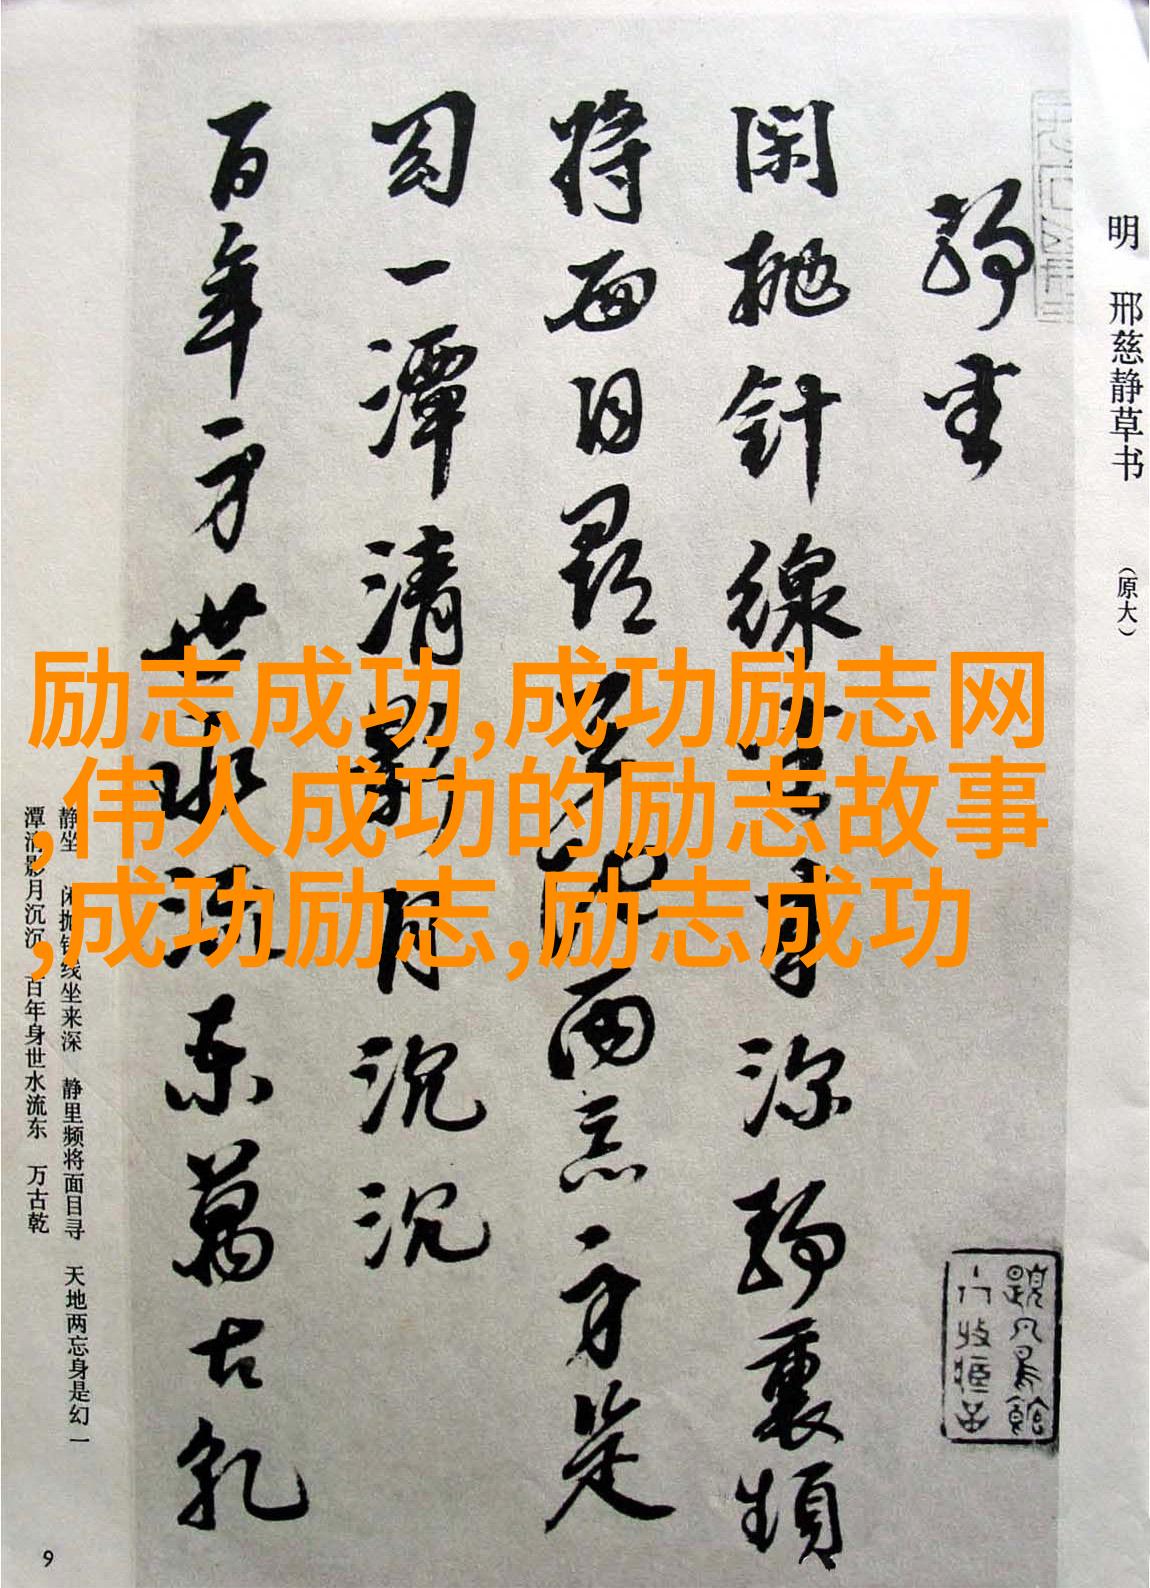 明 邢慈静草书 （原大）
静坐
闲抛针線坐来深静裏频
将面目尋天地两忘身是
幻一潭清影月沉沉
百年身世水流东萬古乾
静坐 闲抛针线坐来深 静里频将面目寻 天地两忘身是幻 一
潭清影月沉沉 百年身世水流东 万古乾
励志成功,成功励志网
,伟人成功的励志故事
,成功励志,励志成功
9